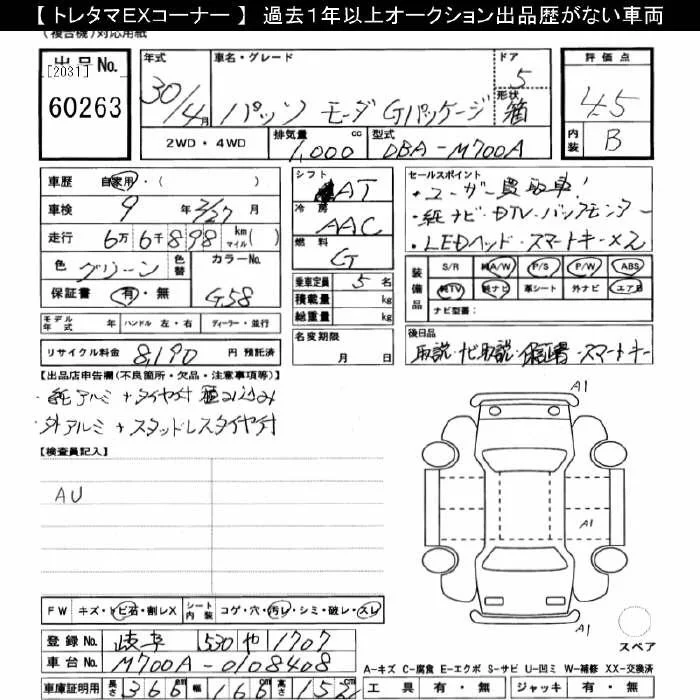 【 トレタマEXコーナー 】 過去1年以上オークション出品歴がない車両
(複合機)対応用紙
出品No.
[2031]
60263
年式 30/4月
車名・グレード パッソ モーダ Gパッケージ
ドア 5
形状 箱
評価点 4.5
内装 B
2WD・4WD
排気量 1,000 cc
型式 DBA-M700A
車歴 自家用・( )
車検 9年 2/27月
走行 6万6千898 km マイル( )
色 グリーン 色替
カラーNo. G58
保証書 有・無
シフト AT
冷房 AAC
燃料 G
乗車定員 5名
積載量 kg
総重量 kg
セールスポイント
・ユーザー買取車!
・純ナビ・DTV・バックモニター
・LEDヘッド・スマートキー×2
装備品 S/R 純A/W P/S P/W ABS
純TV 純ナビ 革シート 外ナビ エアB
ナビ型番:
モデル年式 年 ハンドル 左・右 ディーラー・並行
リサイクル料金 8,190 円 預託済
名変期限 月 日
後日品
取説・ナビ取説・保証書・スマートキー
【出品店申告欄(不良箇所・欠品・注意事項等)】
・純アルミ+タイヤ付 積み込み
・外アルミ+スタッドレスタイヤ付
【検査員記入】
AU
A1
A1
A1
スペア
FW キズ・トビ石・割レX シート内装 コゲ・穴・汚レ・シミ・破レ・スレ
登録No. 岐阜 530 や 1707
車台No. M700A-0108408
車庫証明用 長さ 366 幅 166 高さ 152
A-キズ C-腐食 E-エクボ S-サビ U-凹ミ W-補修 XX-交換済
工具 有・無 ジャッキ 有・無